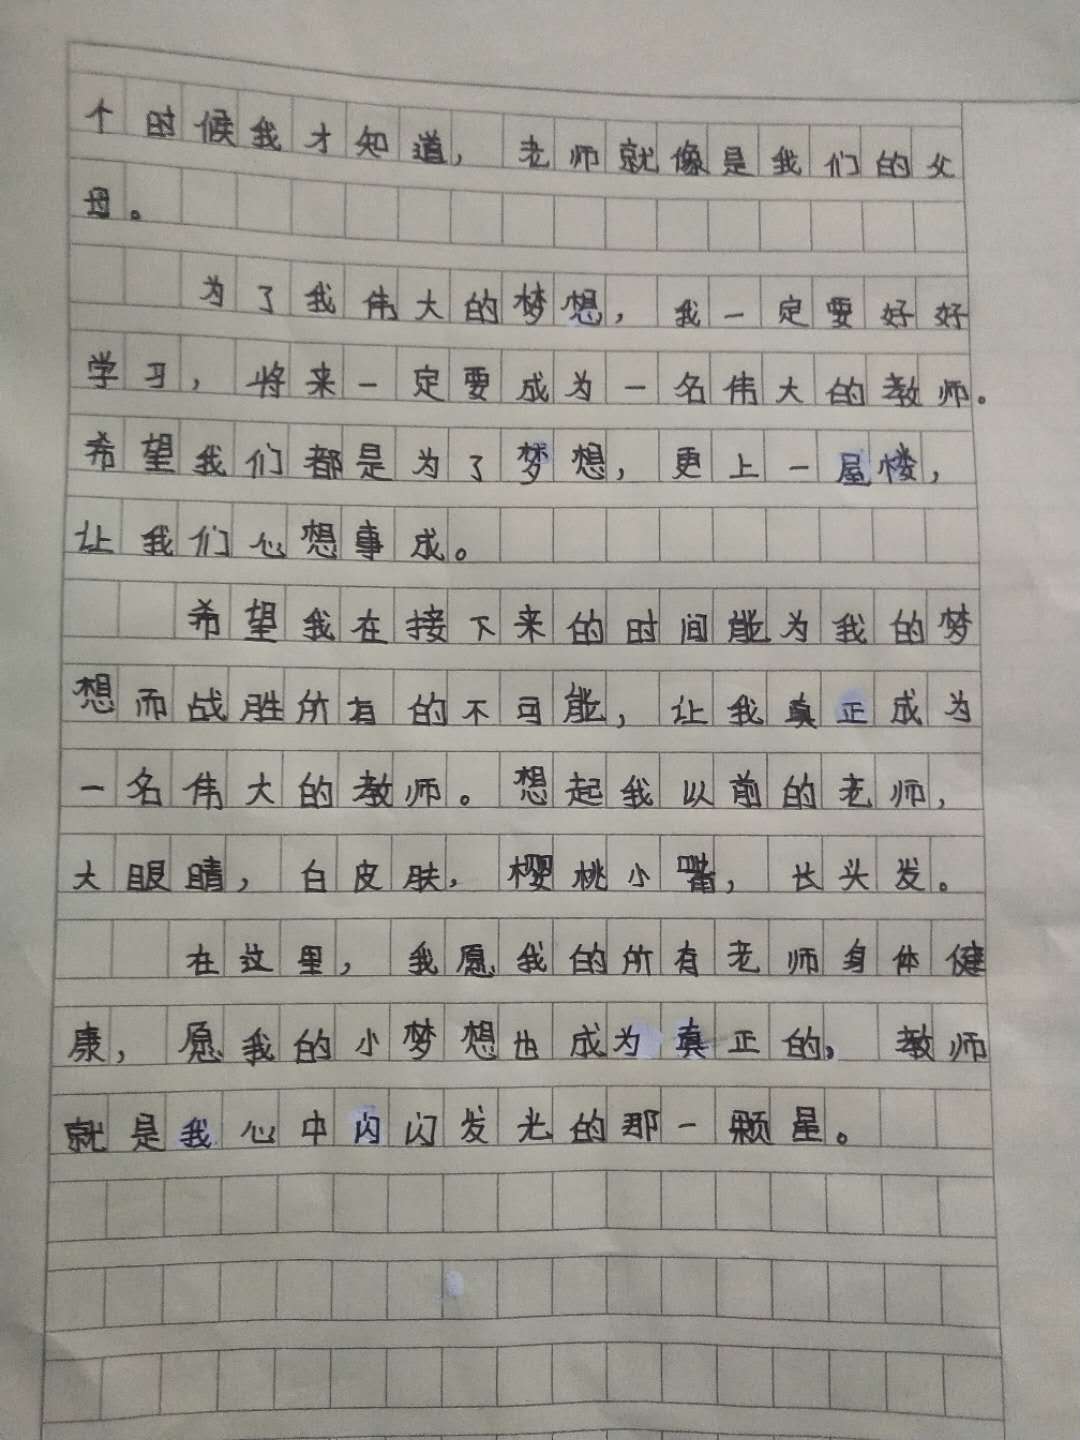 个时候我才知道，老师就像是我们的父
母。
为了我伟大的梦想，我一定要好好
学习，将来一定要成为一名伟大的教师。
希望我们都是为了梦想，更上一屋楼，
让我们心想事成。
希望我在接下来的时间能为我的梦
想而战胜所有的不可能，让我真正成为
一名伟大的教师。想起我以前的老师，
大眼睛，白皮肤，樱桃小嘴，长头发。
在这里，我愿我的所有老师身体健
康，愿我的小梦想也成为真正的，教师
就是我心中闪闪发光的那一颗星。